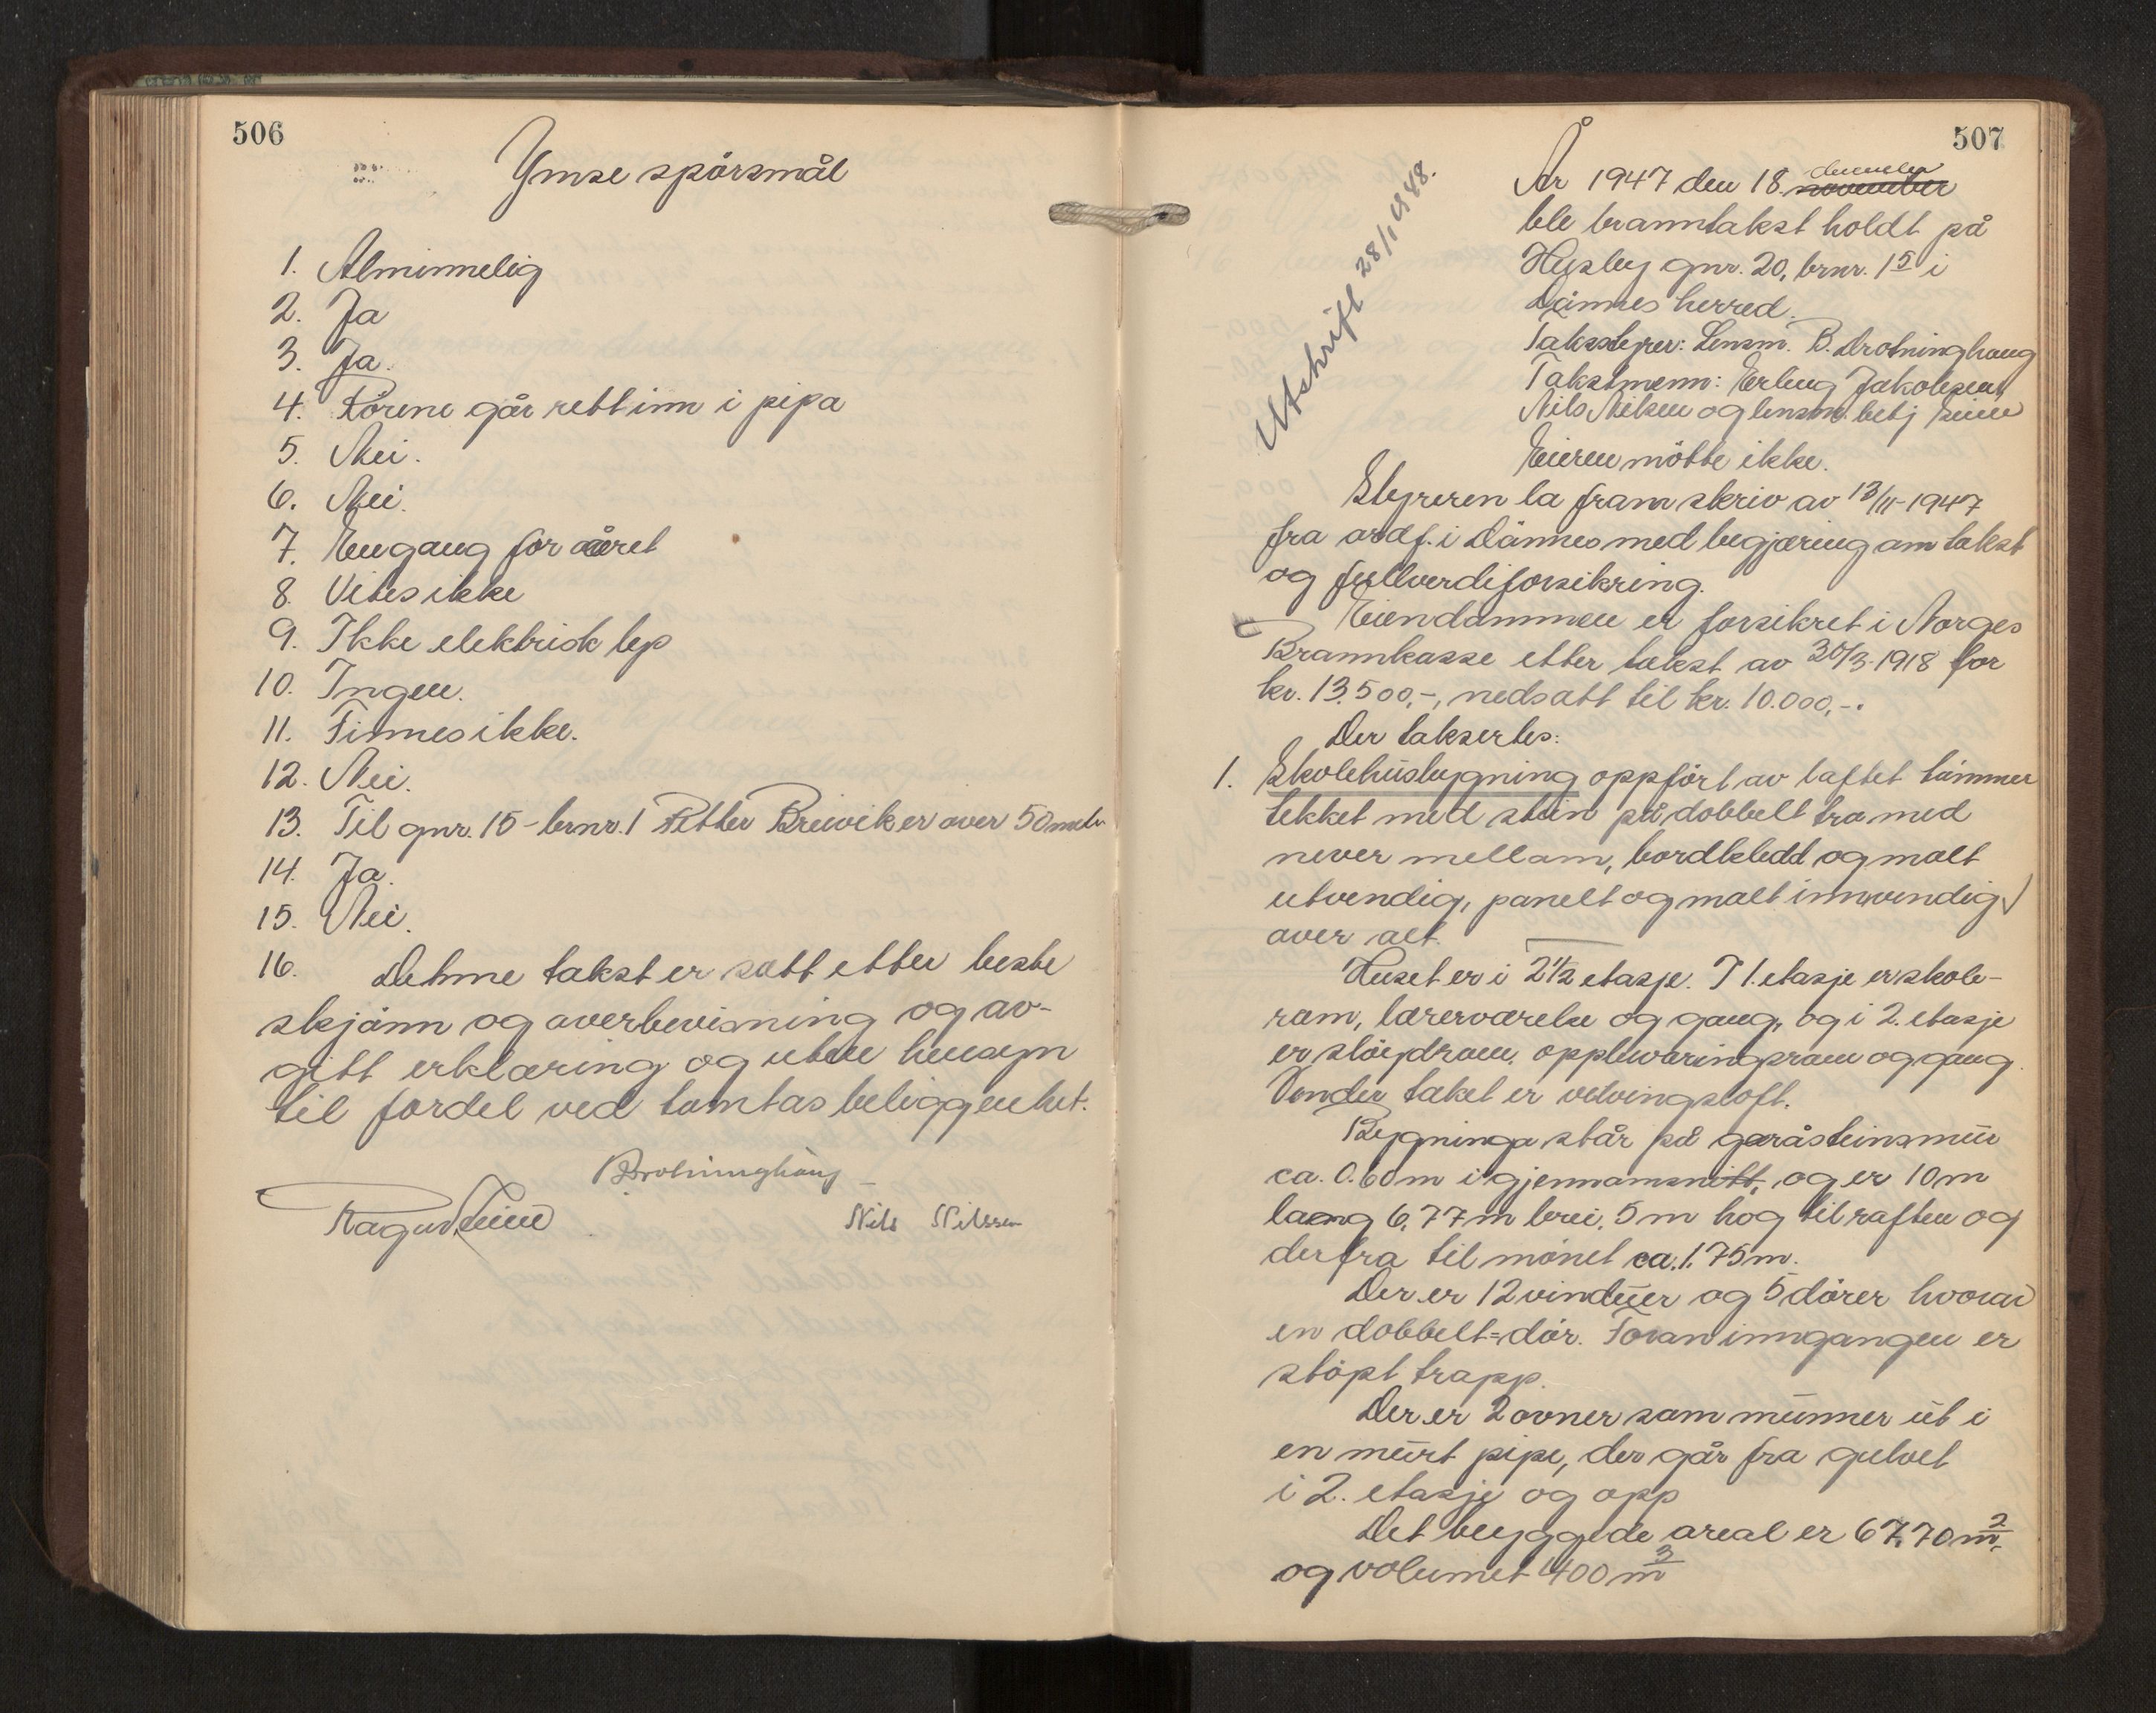 506
Ymse spörsmål
1. Alminnelig
2. Ja
3. Ja.
4. Rörene går rett inn i pipa
5. Nei.
6. Nei.
7. Engang for året
8. Vites ikke
9. Ikke elektrisk lys
10. Ingen.
11. Finnes ikke.
12. Nei.
13. Til gnr. 15 - brnr. 1 Petter Breivik er over 50 metr
14. Ja.
15. Nei.
16. Denne takst er satt etter beste
skjönn og overbevisning og av-
gitt erklæring og uten hensyn
til fordel ved tomtas beliggenhet.
B. Drotninghaug
Ragnv. Leine
Nils Nilssen
507
Utskrift 28/1 1948.
År 1947 den 18. november desember
ble branntakst holdt på
Husby gnr. 20, brnr. 15 i
Dönnes herred.
Takstbyrer: Lensm. B. Drotninghaug
Takstmenn: Erling Jakobsen,
Nils Nilsen og lensm. betj Leine
Eieren mötte ikke.
Styreren la fram skriv av 13/11-1947
fra ordf. i Dönnes med begjæring om takst
og fullverdiforsikring.
Eiendommen er forsikret i Norges
Brannkasse etter takst av 30/3-1918 for
kr. 13.500,-, nedsatt til kr. 10.000,-.
Der taksertes:
1. Skolehusbygning oppfört av laftet tömmer
tekket med stein på dobbelt tro med
never mellom, bordkledd og malt
utvendig, panelt og malt innvendig
over alt.
Huset er i 2 1/2 etasje. I 1. etasje er skole-
rom, lærerværelse og gang, og i 2. etasje
er slöydrom, oppbevaringsrom og gang.
Under taket er hvelvingsloft.
Bygninga står på gråsteinsmur
ca. 0.60 m i gjennomsnitt, og er 10 m
lang 6,77 m brei, 5 m hög til raften og
derfra til mönet ca. 1.75 m.
Der er 12 vinduer og 5 dörer hvorav
en dobbelt=dör. Foran inngangen er
stöpt trapp.
Der er 2 ovner som munner ut i
en murt pipe, der går fra gulvet
i 2. etasje og opp
Det byggede areal er 67,70 m²,
og volumet 400 m³